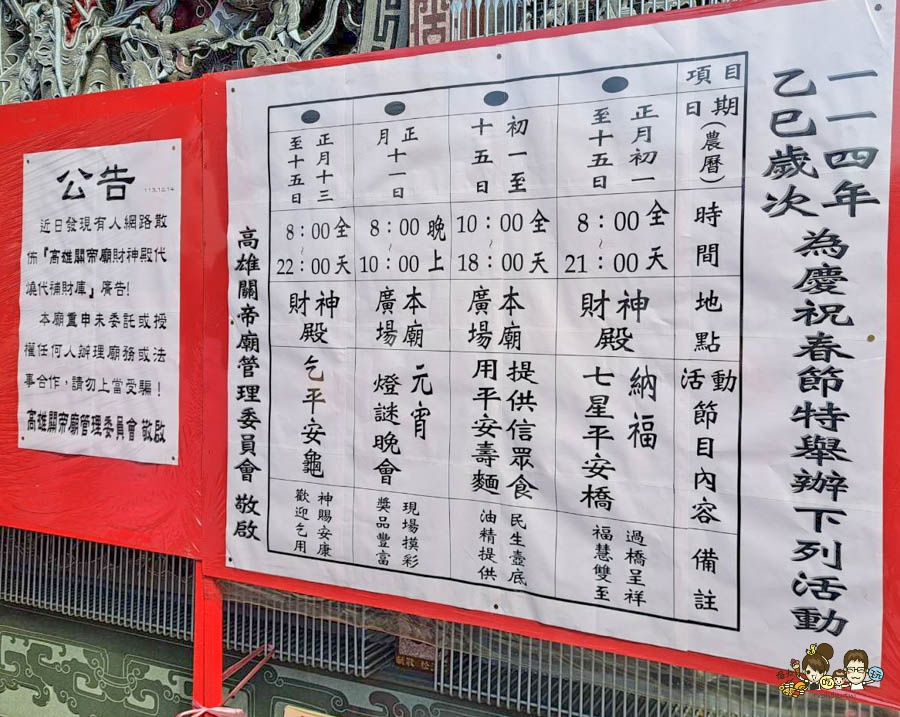 一一四年
乙巳歲次
為慶祝春節特舉辦下列活動
項目
日期(農曆)
時間
地點
活動節目內容
備註
正月初一
至十五日
8:00全
~
21:00天
神
財
殿
納福
七星平安橋
過橋呈祥
福慧雙至
初一至
十五日
10:00全
~
18:00天
本廟
廣場
提供信眾食
用平安壽麵
民生壺底
油精提供
正
月十一日
8:00晚
~
10:00上
本廟
廣場
元宵
燈謎晚會
現場摸彩
獎品豐富
正月十三
至十五日
8:00全
~
22:00天
神
財
殿
乞平安龜
神賜安康
歡迎乞用
高雄關帝廟管理委員會 敬啟
公告
近日發現有人網路散
佈『高雄關帝廟財神殿代
燒代補財庫』廣告!
本廟重申未委託或授
權任何人辦理廟務或法
事合作,請勿上當受騙!
高雄關帝廟管理委員會 敬啟